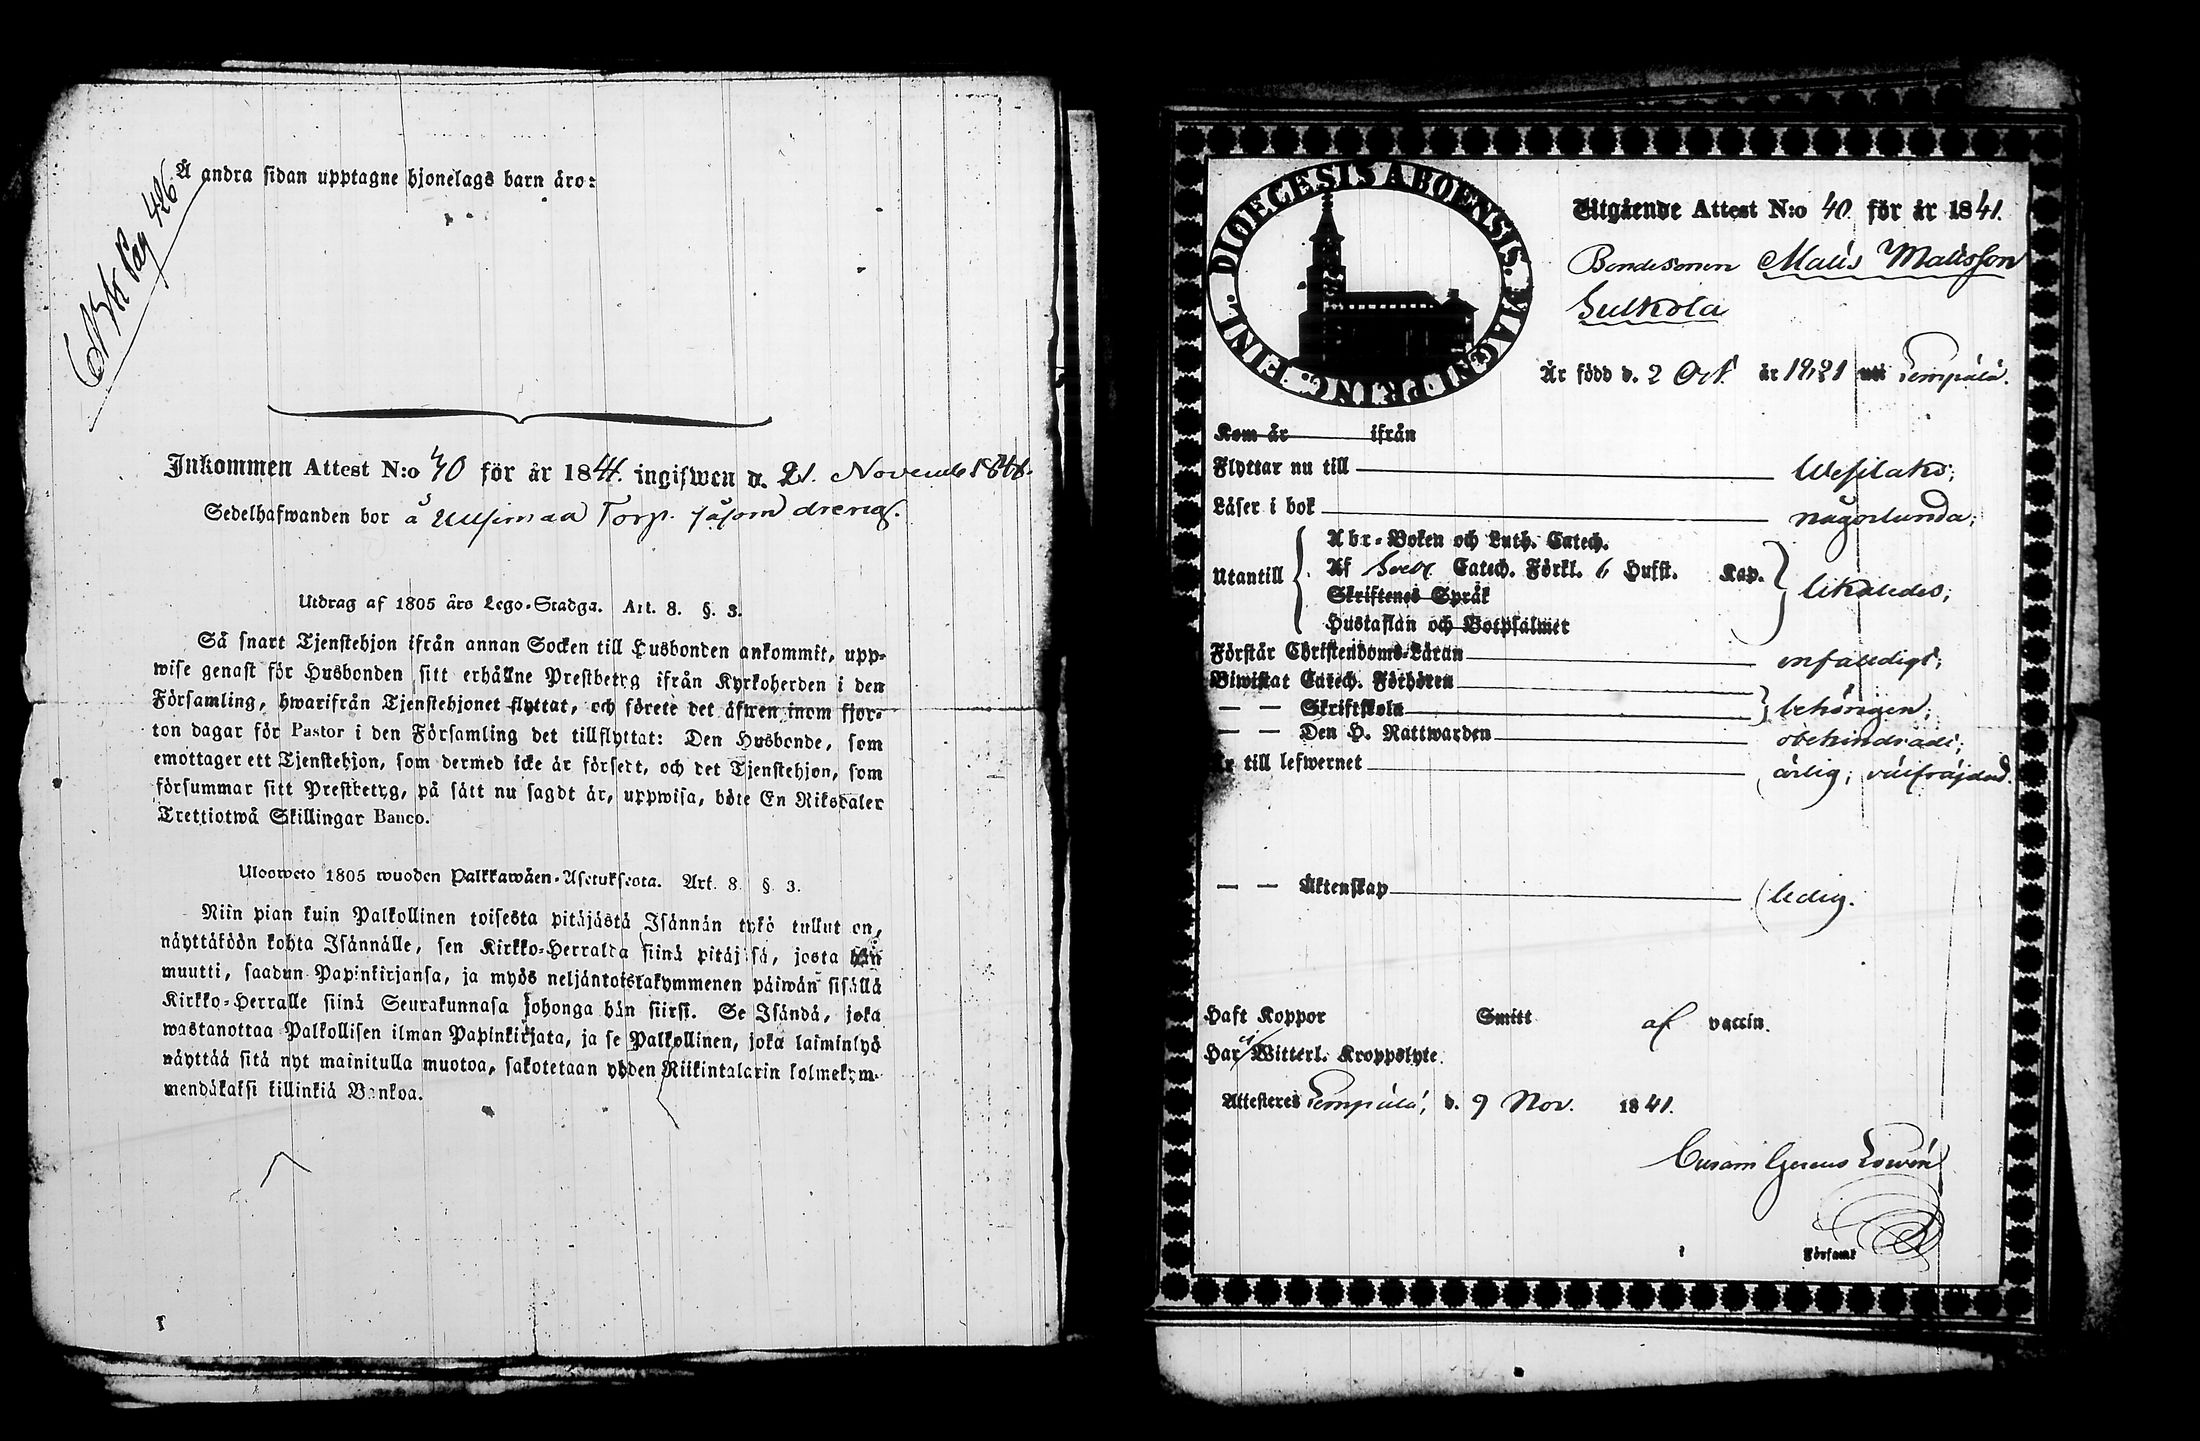 Å andra sidan upptagne hjonelags barn äro:
Pag 426
Inkommen Attest N:o 40 för år 1841. ingifwen d. 21. Novemb 1841.
Sedelhafwanden bor å Torp. såsom dreng.
Utdrag af 1805 års Lego-Stadga. Art. 8. §. 3.
Så snart Tjenstehjon ifrån annan Socken till Husbonden ankommit, upp-
wise genast för Husbonden sitt erhållne Prestbetyg ifrån Kyrkoherden i den
Församling, hwarifrån Tjenstehjonet flyttat, och förete det äfwen inom fjor-
ton dagar för Pastor i den Församling det tillflyttat: Den Husbonde, som
emottager ett Tjenstehjon, som dermed icke är försedt, och det Tjenstehjon, som
försummar sitt Prestbetyg, på sätt nu sagdt är, uppwisa, böte En Riksdaler
Trettiotwå Skillingar Banco.
Ulosweto 1805 wuoden Palkkawäen-Asetuksesta. Art. 8. §. 3.
Niin pian kuin Palkollinen toisesta pitäjästä Isännän tykö tullut on,
näyttäköön kohta Isännälle, sen Kirkko-Herralta siinä pitäjäsä, josta hän
muutti, saadun Papinkirjansa, ja myös neljäntoistakymmenen päiwän sisällä
Kirkko-Herralle siinä Seurakunnasa johonga hän siirsi. Se Isändä, joka
wastanottaa Palkollisen ilman Papinkirjata, ja se Palkollinen, joka laiminlyö
näyttää sitä nyt mainitulla muotoa, sakotetaan yhden Riikintalarin kolmekym-
mendäkaksi killinkiä Bankoa.
DIOECESIS ABOENSIS. MAGNI PRINC. FINL.
Utgående Attest N:o 40. för år 1841.
Bondesonen Matts Mattsson
Sulkola
Är född d. 2 Oct. år 1821 uti Lempälä.
Kom år ifrån
Flyttar nu till Wesilaks;
Läser i bok någorlunda;
Utantill
Abr-Boken och Luth. Catech.
Af Sveb. Catech. Förkl. 6 Hufst. Kap.
likaledes;
Skriftenes Språk
Hustaflan och Botpsalmer
Förstår Christendoms-Läran enfaldigt;
Biwistat Catech. Förhören
— — Skriftskola behörigen;
— — Den H. Nattwarden obehindradt;
Är till lefwernet ärlig; välfräjdad.
— — Äktenskap ledig.
Haft Koppor Smitt af vaccin.
Har ej Witterl. Kroppslyte.
Attesteras Lempälä, d. 9 Nov. 1841.
Församl